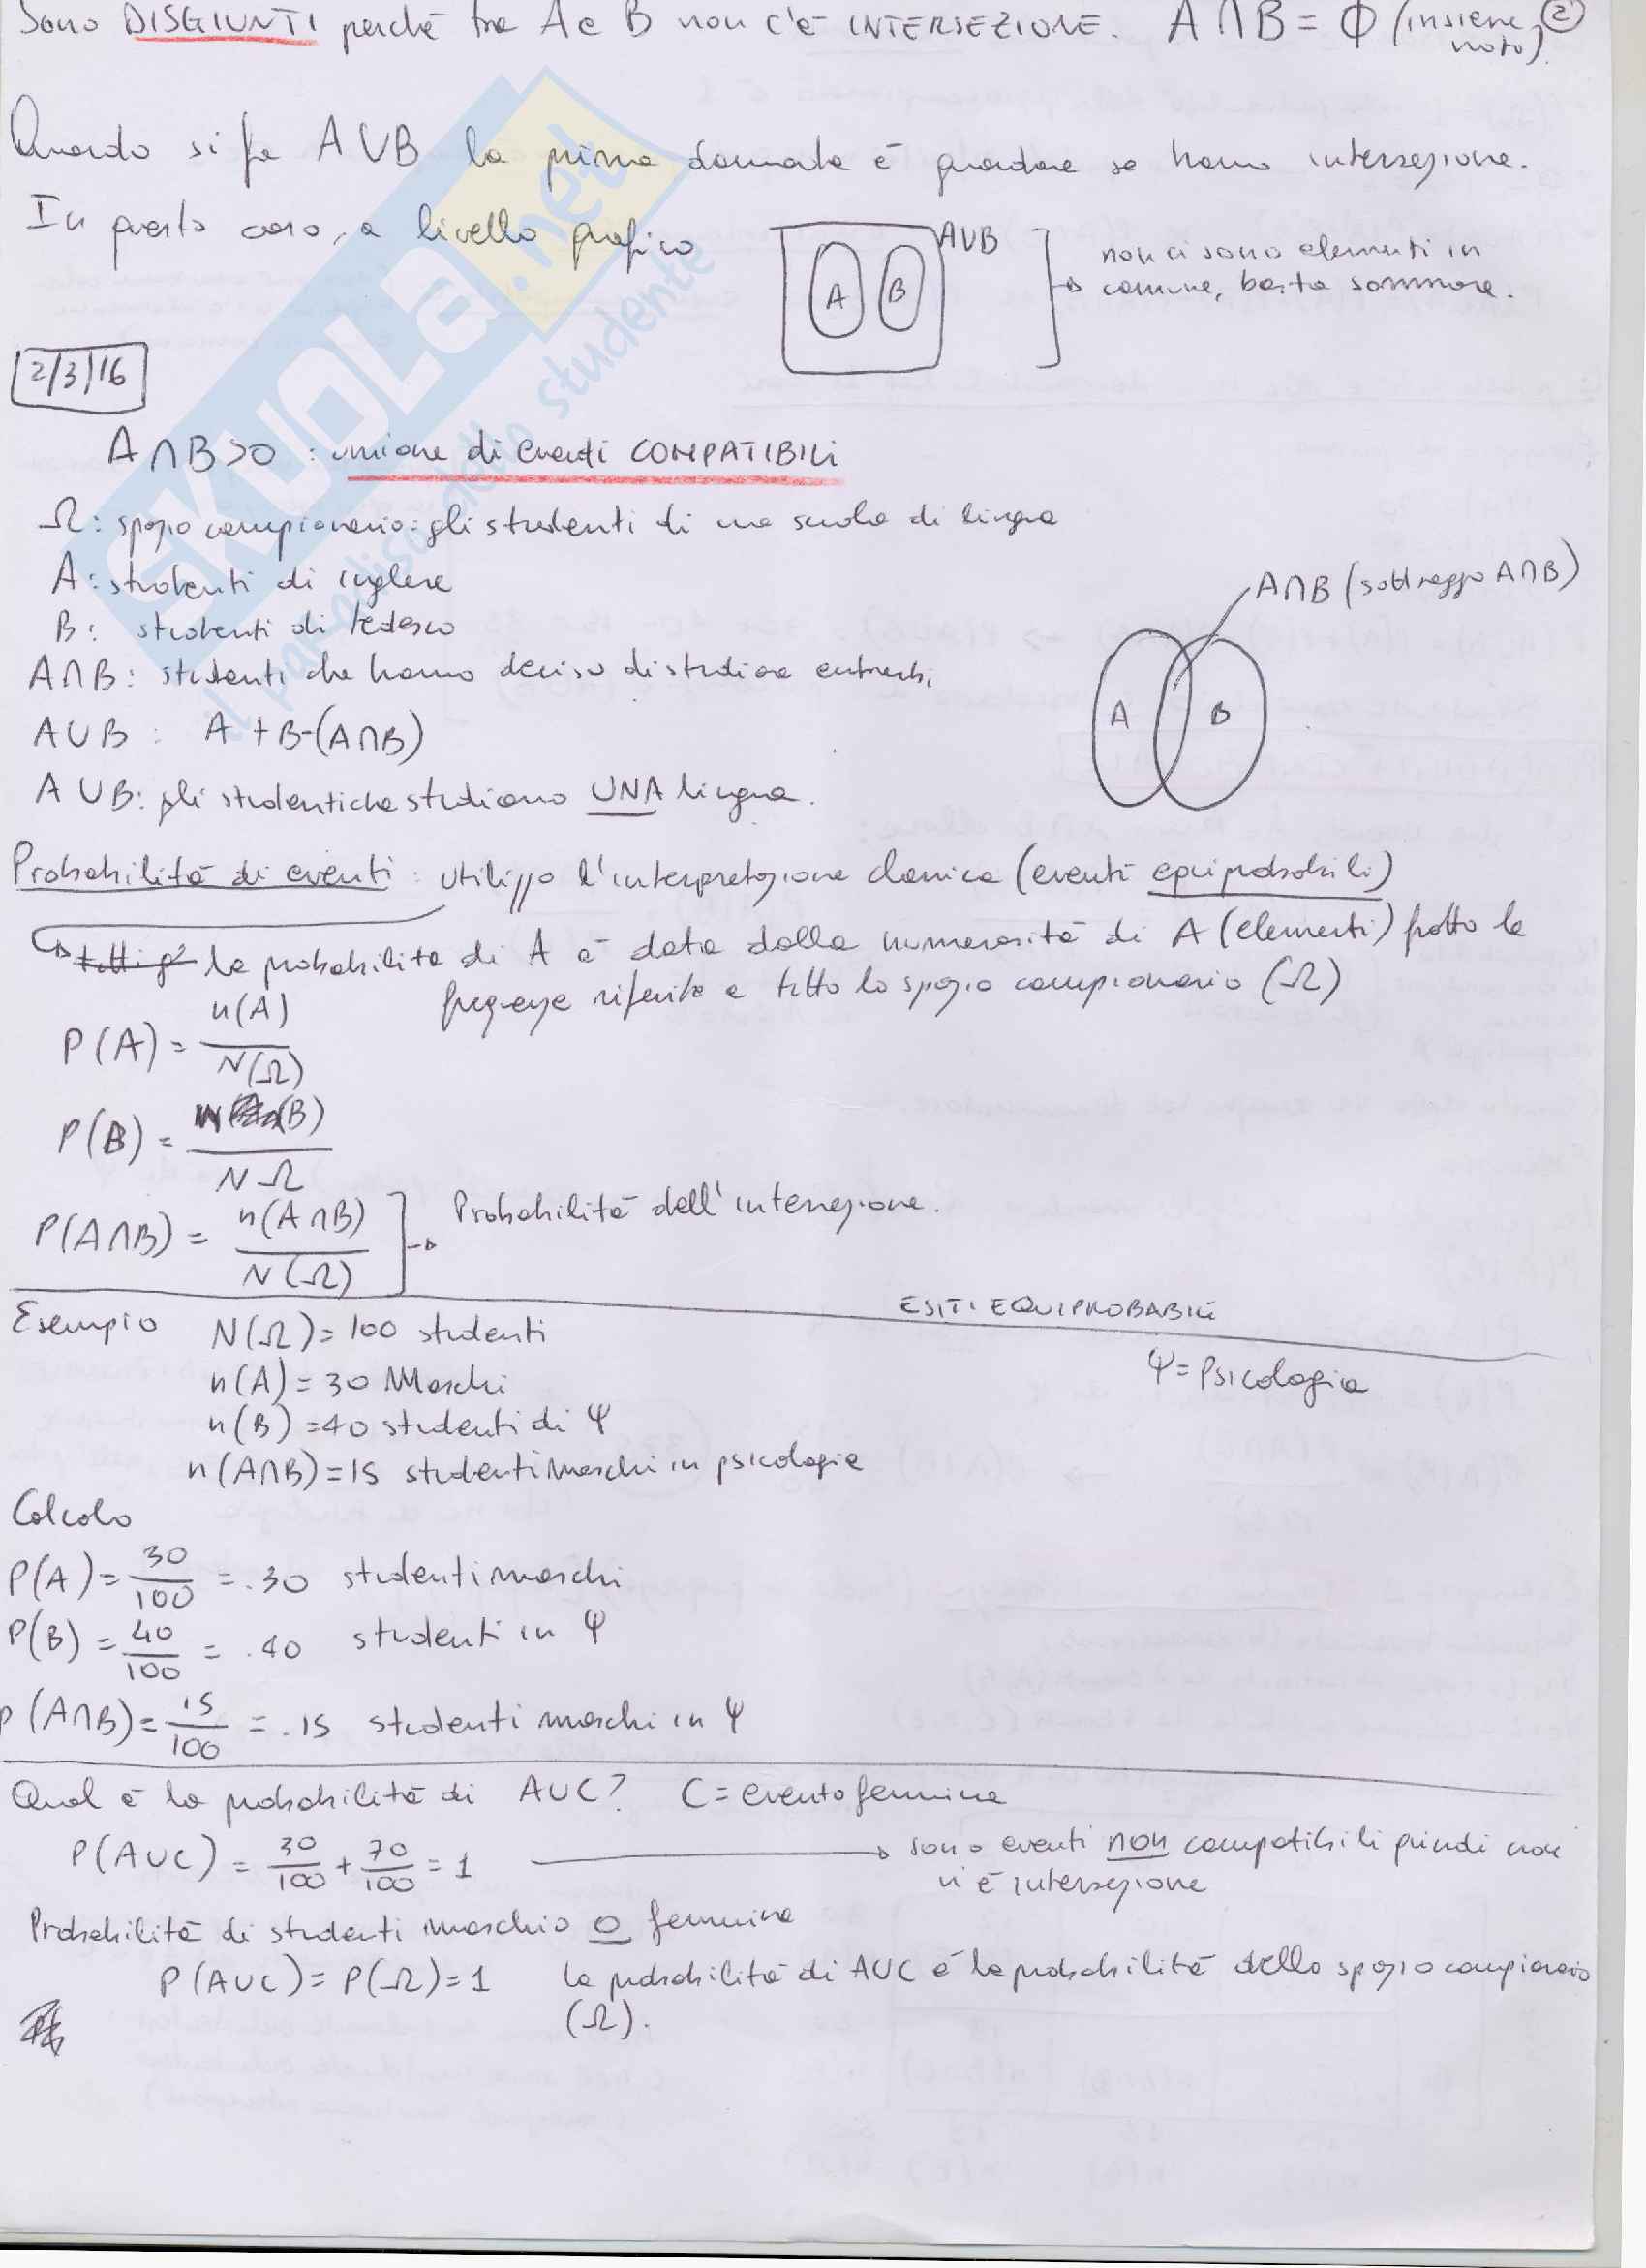 Sono DISGIUNTI perché tra A e B non c'è INTERSEZIONE. A∩B = Φ (insieme vuoto). 2
Quando si fa A∪B la prima domanda è guardare se hanno intersezione.
In questo caso, a livello grafico
A B A∪B
non ci sono elementi in
comune, basta sommare.
2/3/16
A∩B>0 : unione di eventi COMPATIBILI
Ω: spazio campionario: gli studenti di una scuola di lingua
A: studenti di inglese
B: studenti di tedesco
A∩B: studenti che hanno deciso di studiare entrambi
A∪B : A+B-(A∩B)
A∪B: gli studenti che studiano UNA lingua.
A∩B (sottraggo A∩B)
A B
Probabilità di eventi: utilizzo l'interpretazione classica (eventi equiprobabili)
→ la probabilità di A è data dalla numerosità di A (elementi) fratto la
frequenza riferita a tutto lo spazio campionario (Ω)
P(A) = n(A) / N(Ω)
P(B) = n(B) / NΩ
P(A∩B) = n(A∩B) / N(Ω) → Probabilità dell'intersezione.
ESITI EQUIPROBABILI
Esempio N(Ω)=100 studenti
Ψ=Psicologia
n(A)=30 Maschi
n(B)=40 studenti di Ψ
n(A∩B)=15 studenti maschi in psicologia
Calcolo
P(A)= 30/100 = .30 studenti maschi
P(B)= 40/100 = .40 studenti in Ψ
P(A∩B)= 15/100 = .15 studenti maschi in Ψ
Qual è la probabilità di A∪C? C=evento femmina
P(A∪C) = 30/100 + 70/100 = 1 → sono eventi non compatibili quindi non
vi è intersezione
Probabilità di studenti maschio o femmina
P(A∪C)=P(Ω)=1 la probabilità di A∪C è la probabilità dello spazio campionario
(Ω).
SKUOLA.net
il paradiso dello studente